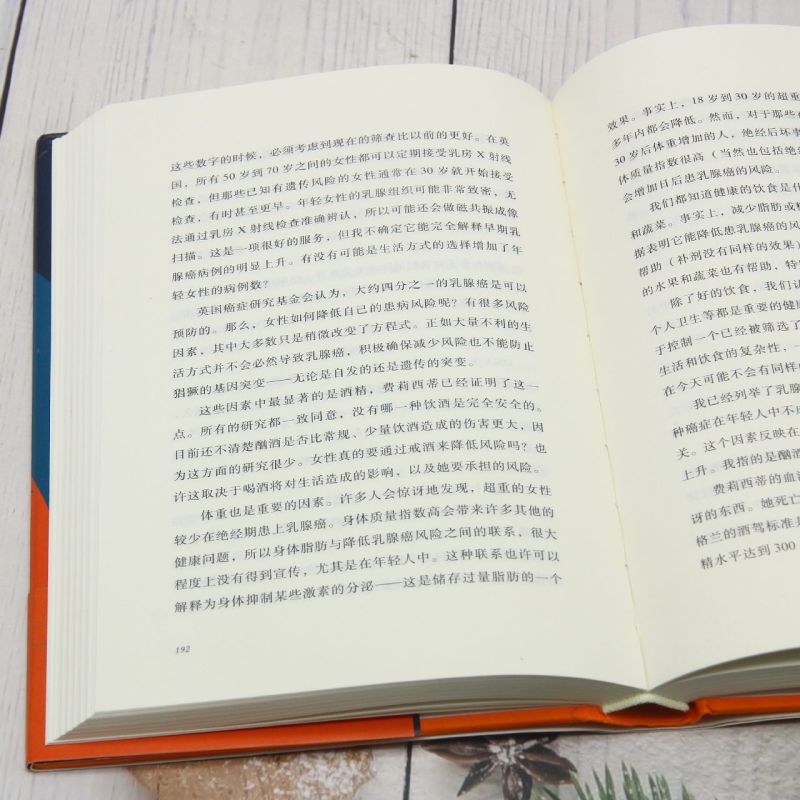 这些数字的时候，必须考虑到现在的筛查比以前的更好。在英
国，所有 50 岁到 70 岁之间的女性都可以定期接受乳房 X 射线
检查，但那些已知有遗传风险的女性通常在 30 岁就开始接受
检查，有时甚至更早。年轻女性的乳腺组织可能非常致密，无
法通过乳房 X 射线检查准确辨认，所以可能还会做磁共振成像
扫描。这是一项很好的服务，但我不确定它能完全解释早期乳
腺癌病例的明显上升。有没有可能是生活方式的选择增加了年
轻女性的病例数？
英国癌症研究基金会认为，大约四分之一的乳腺癌是可以
预防的。那么，女性如何降低自己的患病风险呢？有很多风险
因素，其中大多数只是稍微改变了方程式。正如大量不利的生
活方式并不会必然导致乳腺癌，积极确保减少风险也不能防止
猖獗的基因突变——无论是自发的还是遗传的突变。
这些因素中最显著的是酒精，费莉西蒂已经证明了这一
点。所有的研究都一致同意，没有哪一种饮酒是完全安全的。
目前还不清楚酗酒是否比常规、少量饮酒造成的伤害更大，因
为这方面的研究很少。女性真的要通过戒酒来降低风险吗？也
许这取决于喝酒将对生活造成的影响，以及她要承担的风险。
体重也是重要的因素。许多人会惊讶地发现，超重的女性
较少在绝经期患上乳腺癌。身体质量指数高会带来许多其他的
健康问题，所以身体脂肪与降低乳腺癌风险之间的联系，很大
程度上没有得到宣传，尤其是在年轻人中。这种联系也许可以
解释为身体抑制某些激素的分泌——这是储存过量脂肪的一个
192
效果。事实上，18 岁到 30 岁的超重
多年内都会降低。然而，对于那些
30 岁后体重增加的人，绝经后坏事
体质量指数很高（当然也包括绝
会增加日后患乳腺癌的风险。
我们都知道健康的饮食是什
和蔬菜。事实上，减少脂肪或
据表明它能降低患乳腺癌的风
帮助（补剂没有同样的效果）
的水果和蔬菜也有帮助，特
除了好的饮食，我们认
个人卫生等都是重要的健
于控制一个已经被筛选了
生活和饮食的复杂性，一
在今天可能不会有同样
我已经列举了乳腺
种癌症在年轻人中不
关。这个因素反映在
上升。我指的是酗酒
费莉西蒂的血
讶的东西。她死亡
格兰的酒驾标准是
精水平达到 300